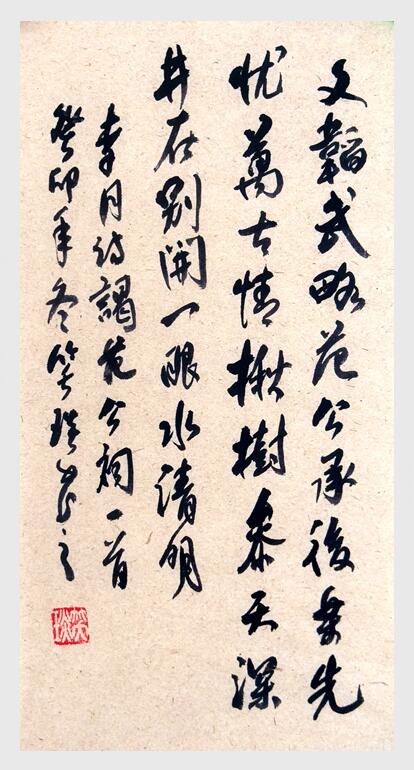 文韜武略范公承後樂先
忧萬古情楸樹叅天深
井在别開一眼水清明
李月诗謁范公祠一首
癸卯年冬